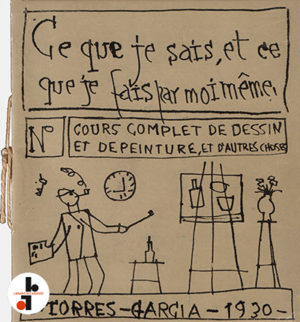 Ce que je sais, et ce
que je fais par moi même,
Nº
COURS COMPLET DE DESSIN
ET DE PEINTURE, ET D'AUTRES CHOSES
TORRES-GARCIA-1930-